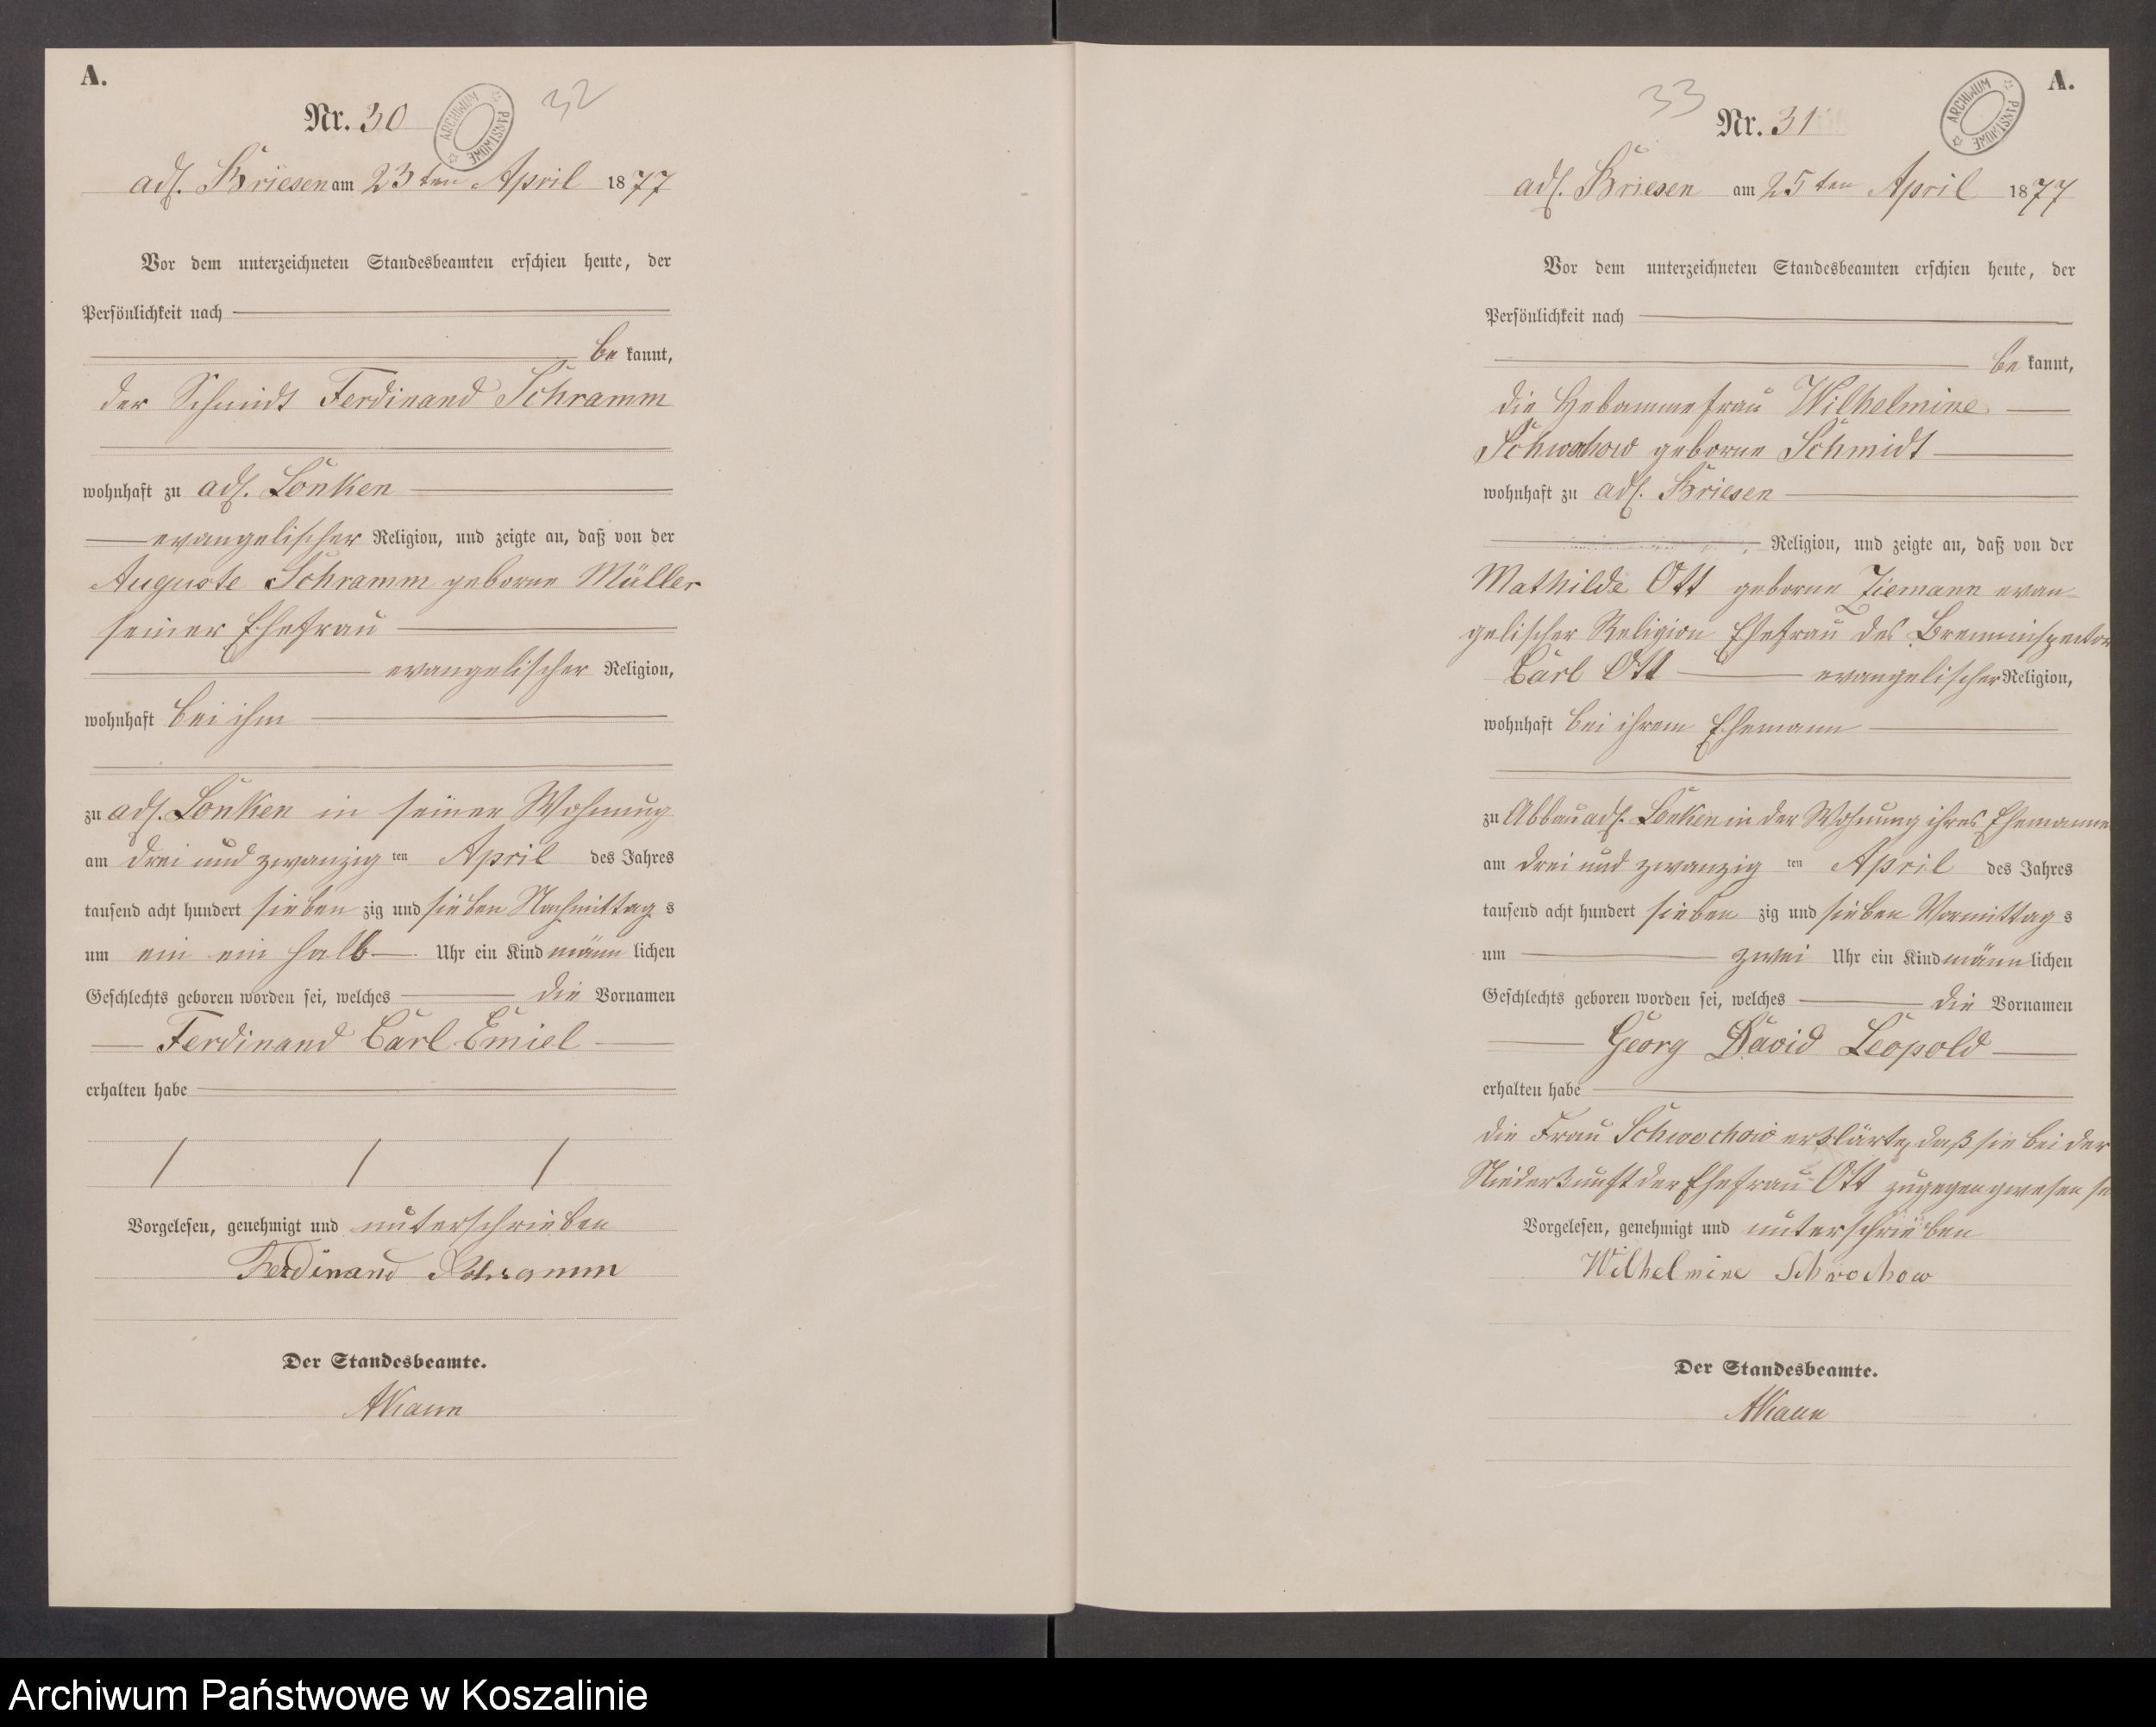 A.
Nr. 30
32
ARCHIWUM PAŃSTWOWE
adl. Briesen am 23ten April 1877
Vor dem unterzeichneten Standesbeamten erschien heute, der
Persönlichkeit nach
be kannt,
der Schmidt Ferdinand Schramm
wohnhaft zu adl. Lonken
evangelischer Religion, und zeigte an, daß von der
Auguste Schramm geborne Müller
seiner Ehefrau
evangelischer Religion,
wohnhaft bei ihm
zu adl. Lonken in seiner Wohnung
am drei und zwanzig ten April des Jahres
tausend acht hundert sieben zig und sieben Nachmittag s
um ein ein halb Uhr ein Kind männ lichen
Geschlechts geboren worden sei, welches die Vornamen
Ferdinand Carl Emiel
erhalten habe
Vorgelesen, genehmigt und unterschrieben
Ferdinand Schramm
Der Standesbeamte.
A.
33
Nr. 31
ARCHIWUM PAŃSTWOWE
adl. Briesen am 25ten April 1877
Vor dem unterzeichneten Standesbeamten erschien heute, der
Persönlichkeit nach
be kannt,
die Hebammefrau Wilhelmine
Schwochow geborne Schmidt
wohnhaft zu adl. Briesen
Religion, und zeigte an, daß von der
Mathilde Ott geborne Ziemann evan-
gelischer Religion Ehefrau des Brenninspector
Carl Ott evangelischer Religion,
wohnhaft bei ihrem Ehemann
zu Abbau adl. Lonken in der Wohnung ihres Ehemanne
am drei und zwanzig ten April des Jahres
tausend acht hundert sieben zig und sieben Vormittag s
um zwei Uhr ein Kind männ lichen
Geschlechts geboren worden sei, welches die Vornamen
Georg David Leopold
erhalten habe
die Frau Schwochow erklärte, daß sie bei der
Niederkunft der Ehefrau Ott zugegen gwesen se
Vorgelesen, genehmigt und unterschrieben
Wilhelmine Schwochow
Der Standesbeamte.
Archiwum Państwowe w Koszalinie